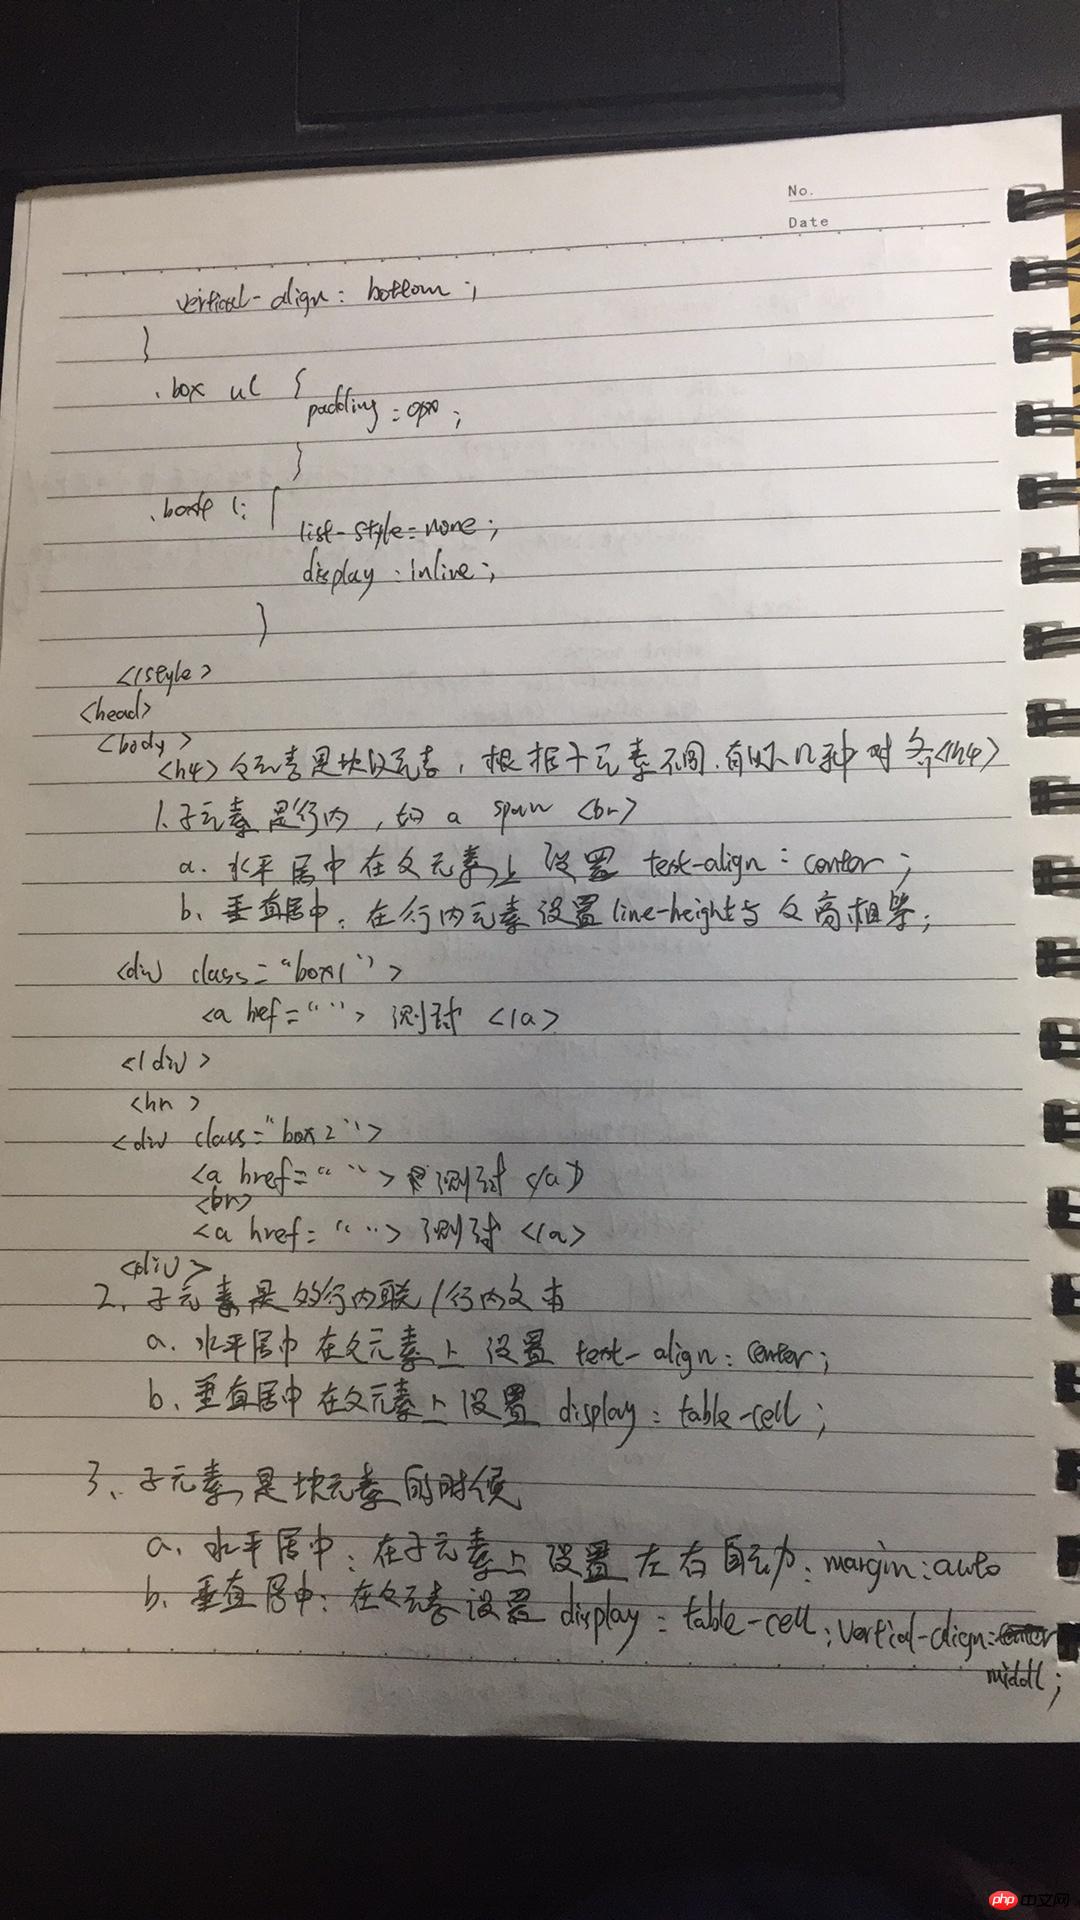 No.
Date
vertical-align: bottom;
}
.box ul {
padding: 0px;
}
li {
list-style: none;
display: inline;
}
</style>
<head>
<body>
<h4>父元素是块级元素，根据子元素不同,有以几种对齐<h4>
1.子元素是行内，如 a span <br>
a. 水平居中在父元素上设置 test-align: center;
b、垂直居中：在行内元素设置line-height与父高相等;
<div class="box1">
<a hef=""> 测试 </a>
</div>
<hr>
<div class="box2">
<a href=""> 测试 </a>
<br>
<a href=""> 测试 </a>
<div>
2、子元素是多行内联/行内文本
a. 水平居中在父元素上设置 text-align: center;
b、垂直居中在父元素上设置 display: table-cell;
3、子元素是块元素的时候
a. 水平居中：在子元素上设置左右自动: margin: auto
b. 垂直居中：在父元素设置 display: table-cell; vertial-align:
middl;
php 中文网